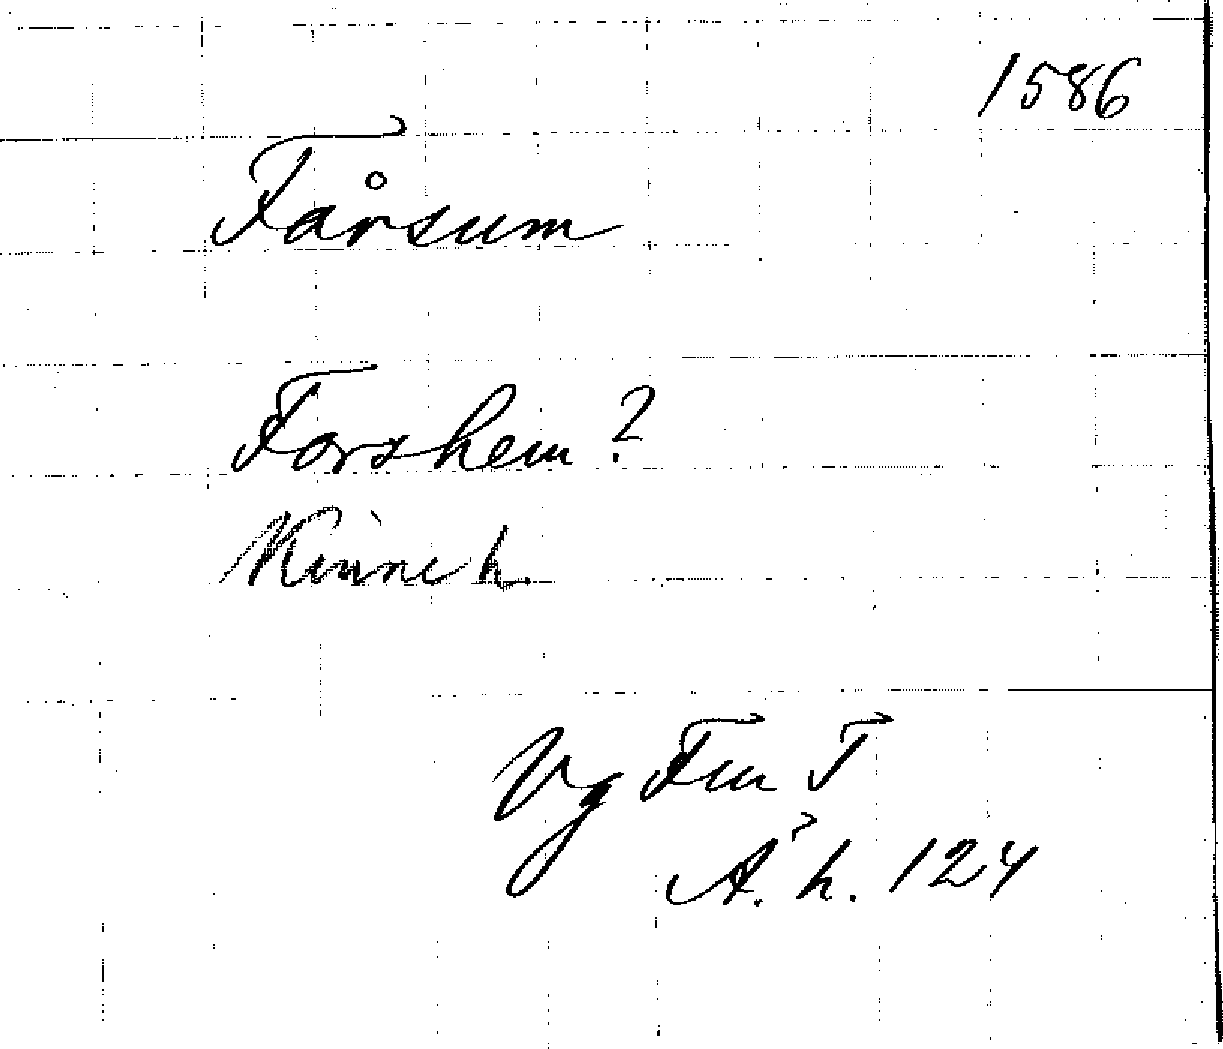 1586
Fårsum
Forshem?
Kinne h.
Vg Fru T
Å. h. 124